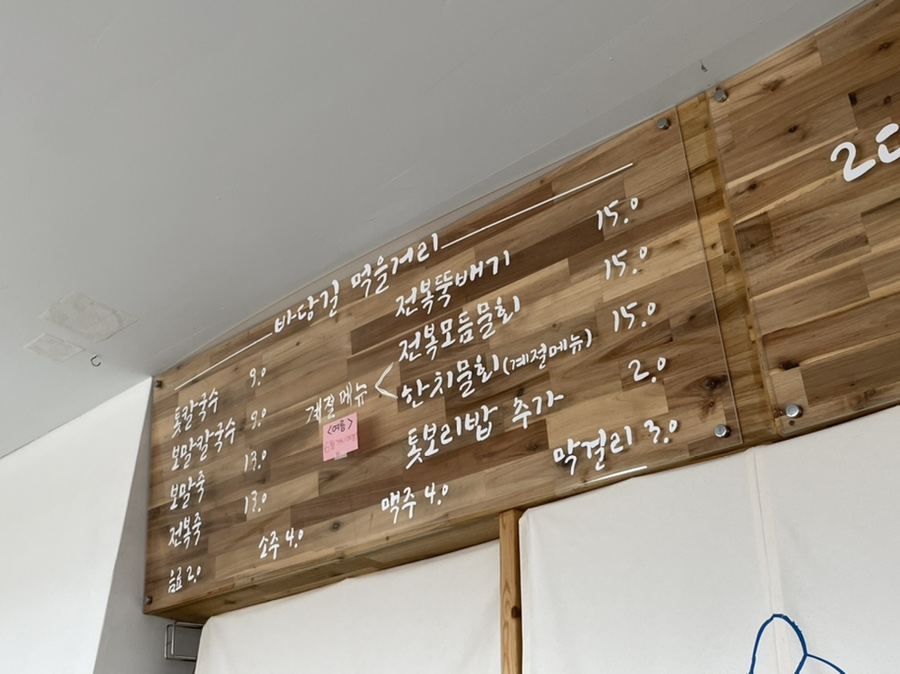 바당길 먹을거리
톳칼국수 9.0
보말칼국수 9.0
보말죽 13.0
전복죽 13.0
음료 2.0
소주 4.0
맥주 4.0
막걸리 3.0
전복뚝배기 15.0
계절메뉴
<여름>
전복모듬물회 15.0
한치물회(계절메뉴) 15.0
톳보리밥 추가 2.0